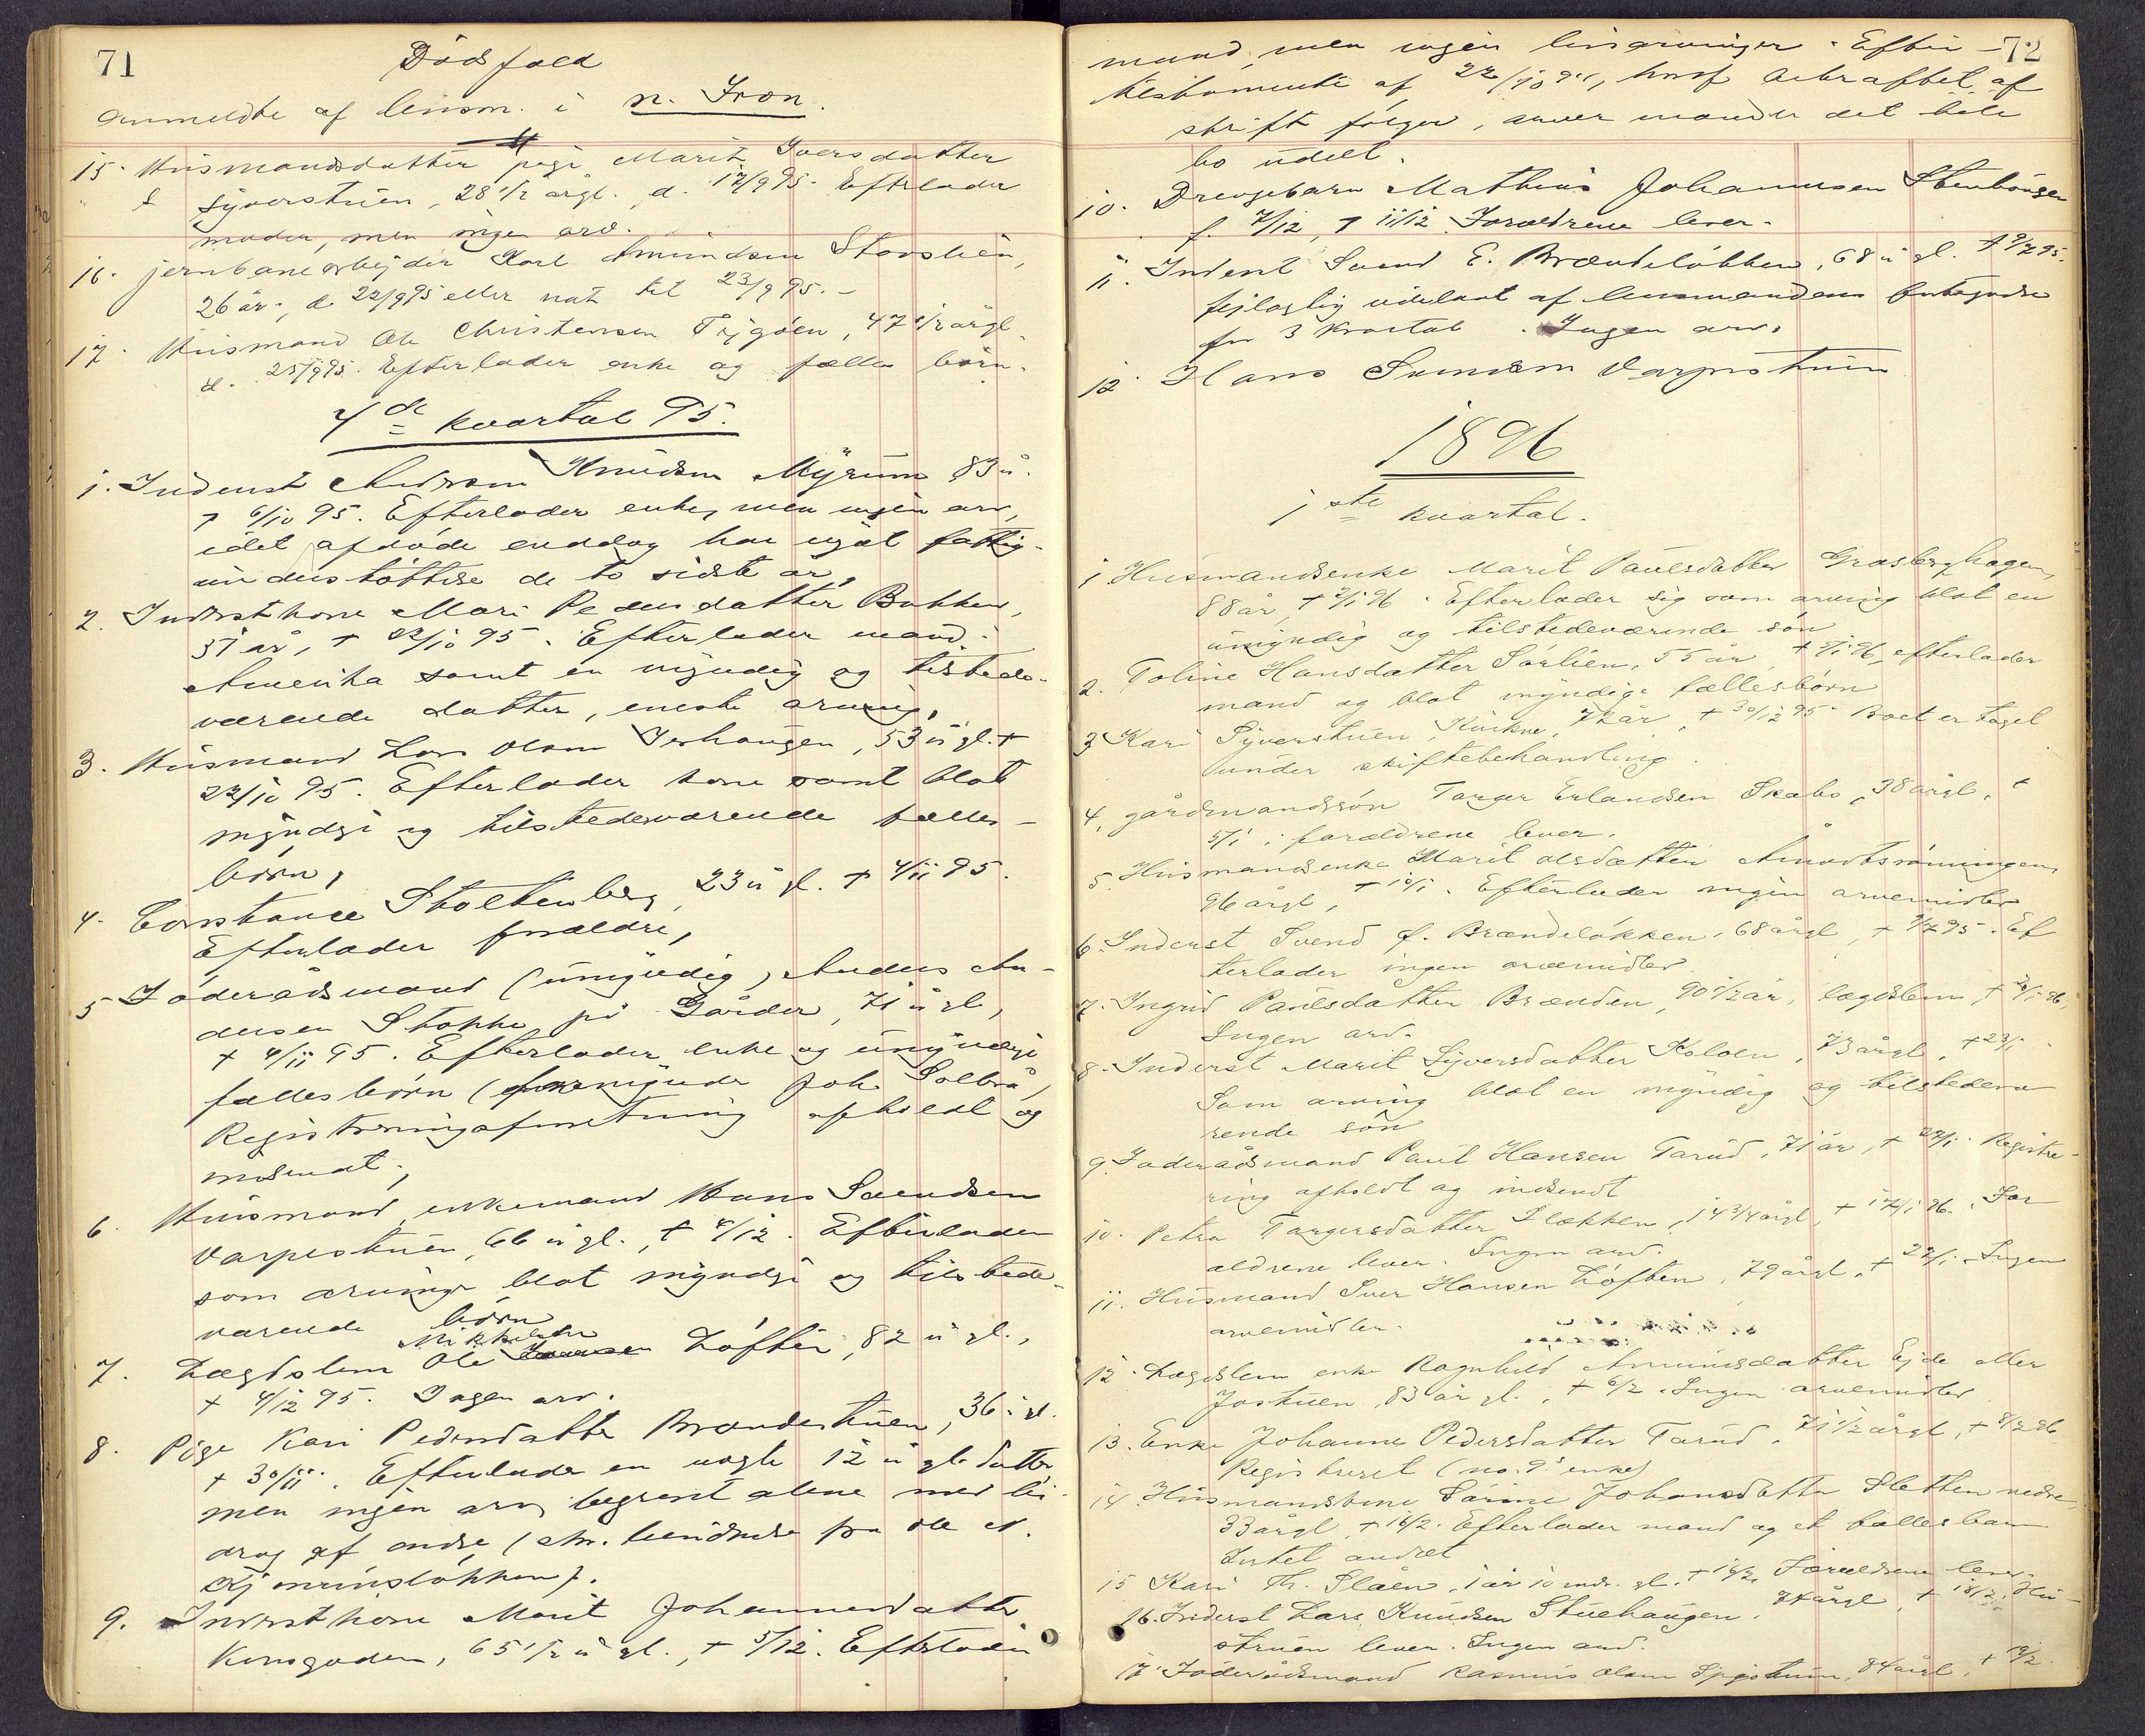 71
Dødsfald
anmeldte af lensm. i n. Fron.
15. Husmandsdatter pige Marit Iversdatter
Syverstuen, 28 1/2 årgl. d. 17/9 95. Efterlader
moder, men ingen arv.
16. jernbanearbejder Karl Amundsen Stavslien,
26 år, d. 22/9 95 eller nat til 23/9 95.–
17. Husmand Ole Christensen Frygøen, 47 1/2 årgl.
d. 25/9 95. Efterlader enke og fælles børn.
4de kvartal 95.
1. Inderst Andersen Knudsen Myrum 83 å.
† 6/10 95. Efterlader enke, men ingen arv,
idet afdøde enddog har nydt fattig-
understøttelse de to sidste år,
2. Inderstkone Mari Pedersdatter Bakken,
37 år, † 22/10 95. Efterlader mand i
Amerika samt en myndig og tilstede-
værende datter, eneste arving,
3. Husmand Lars Olsen Ierhaugen, 53 å gl. †
22/10 95. Efterlader kone samt blot
myndige og tilstedeværende fælles-
børn,
4. Constance Stoltenberg, 23 å gl. † 4/11 95.
Efterlader forældre,
5 Føderådsmand (umyndig) Anders An-
dersen Stokke på Gårder, 71 å gl,
† 4/11 95. Efterlader enke og umyndige
fælles børn (formynder Joh. Solbrå,
Registreringsforretning afholdt og
indsendt,
6. Husmand, enkemand Hans Svendsen
Varpestuen, 66 å gl., † 4/12. Efterlader
som arvinge blot myndige og tilstede-
værende børn
Mikkelsen
7. Lægdslem Ole Løften, 82 å gl.,
† 4/12 95. Ingen arv.
8. Pige Kari Pedersdatter Brændestuen, 36 å gl.
† 30/11. Efterlader en uægte 12 å gl datter
men ingen arv, begravet alene med bi-
drag af andre (str. hendvendelse fra Ole N.
Kjørumsløkken).
9. Inderstkone Marit Johannesdatter
Kongsoden, 65 1/2 å gl., † 5/12. Efterlader
72
mand, men ingen livsarvinger. Efter
testamente af 22/10 91, hvoraf bekræftet af
skrift følger, arver manden det hele
bo udelt.
10. Drengebarn Mathias Johannesen Stenhaugen
f. 7/12, † 11/12. Forældrene lever.
11. Inderst Svend E. Brændeløkken, 68 å gl. † 9/7 95.
fejlagtig udeladt af lensmandens fortegnelse
for 3 kvartal. Ingen arv.
12 Hans Svendsen Varpestuen
1896
1ste kvartal.
1 Husmandsenke Marit Paulsdatter Grasberghagen,
88 år, † 2/1 96. Efterlader sig som arving blot en
umyndig og tilstedeværende søn
2. Toline Hansdatter Sørlien, 55 år, † 2/1 96, efterlader
mand og blot myndige fællesbørn
3 Kari Syverstuen, Kvikne, 72 år, † 30/12 95. Boet er taget
under skiftebehandling.
4, gårdmandssøn Torger Erlandsen Skabo, 38 årgl. †
5/1; forældrene lever.
5. Husmandsenke Marit Olsdatter Amodtsrønningen,
96 årgl, † 10/1. Efterlader ingen arvemidler
6. Inderst Svend E. Brændeløkken, 68 årgl, † 9/7 95. Ef
terlader ingen arvemidler
7. Ingrid Paulsdatter Brænden, 90 1/2 år, lægdslem, † 20/1 96,
Ingen arv.
8. Inderst Marit Syversdatter Kololen, 73 årgl. † 23/1
Som arving blot en myndig og tilstedevæ
rende søn
9. Føderådsmand Paul Hansen Tarud, 71 år, † 27/1. Registre-
ring afholdt og indsendt
10. Petra Torgersdatter Flækken, 14 3/4 årgl, † 17/1 96. For
ældrene lever. Ingen arv.
11. Husmand Iver Hansen Løften, 79 årgl. † 22/1. Ingen
arvemidler.
12. Lægdslem enke Ragnhild Amundsdatter Ejde eller
Jostuen, 83 år gl., † 6/2. Ingen arvemidler
13. Enke Johanne Pedersdatter Tarud, 71 1/2 årgl, † 8/2 96
Registreret (no. 9's enke)
14. Husmandskone Sørine Johansdatter Sletten nedre
33 årgl, † 16/2. Efterlader mand og et fællesbarn
Intet andet
15 Kari Th. Slåen, 1 år 10 mdr. gl. † 18/2, Forældrene lever.
16. Inderst Lars Knudsen Stuehaugen, 74 årgl, † 18/2. Hu-
struen lever. Ingen arv.
17 Føderådsmand Rasmus Olsen Spigstuen, 84 årgl, † 19/2